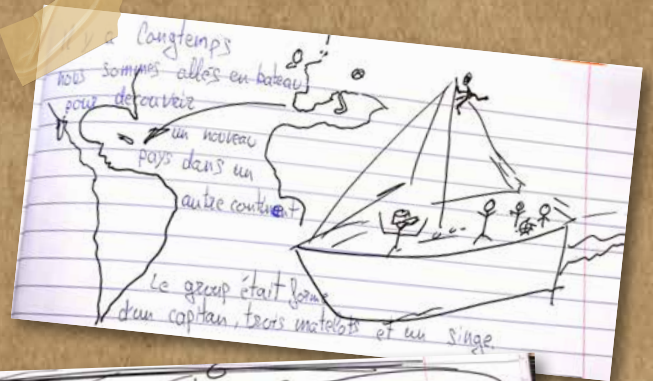 Il y a longtemps
nous sommes allés en bateau
pour decouvrir
un nouveau
pays dans un
autre continent
Le group était formé
d'un capitan, trois matelots et un singe.